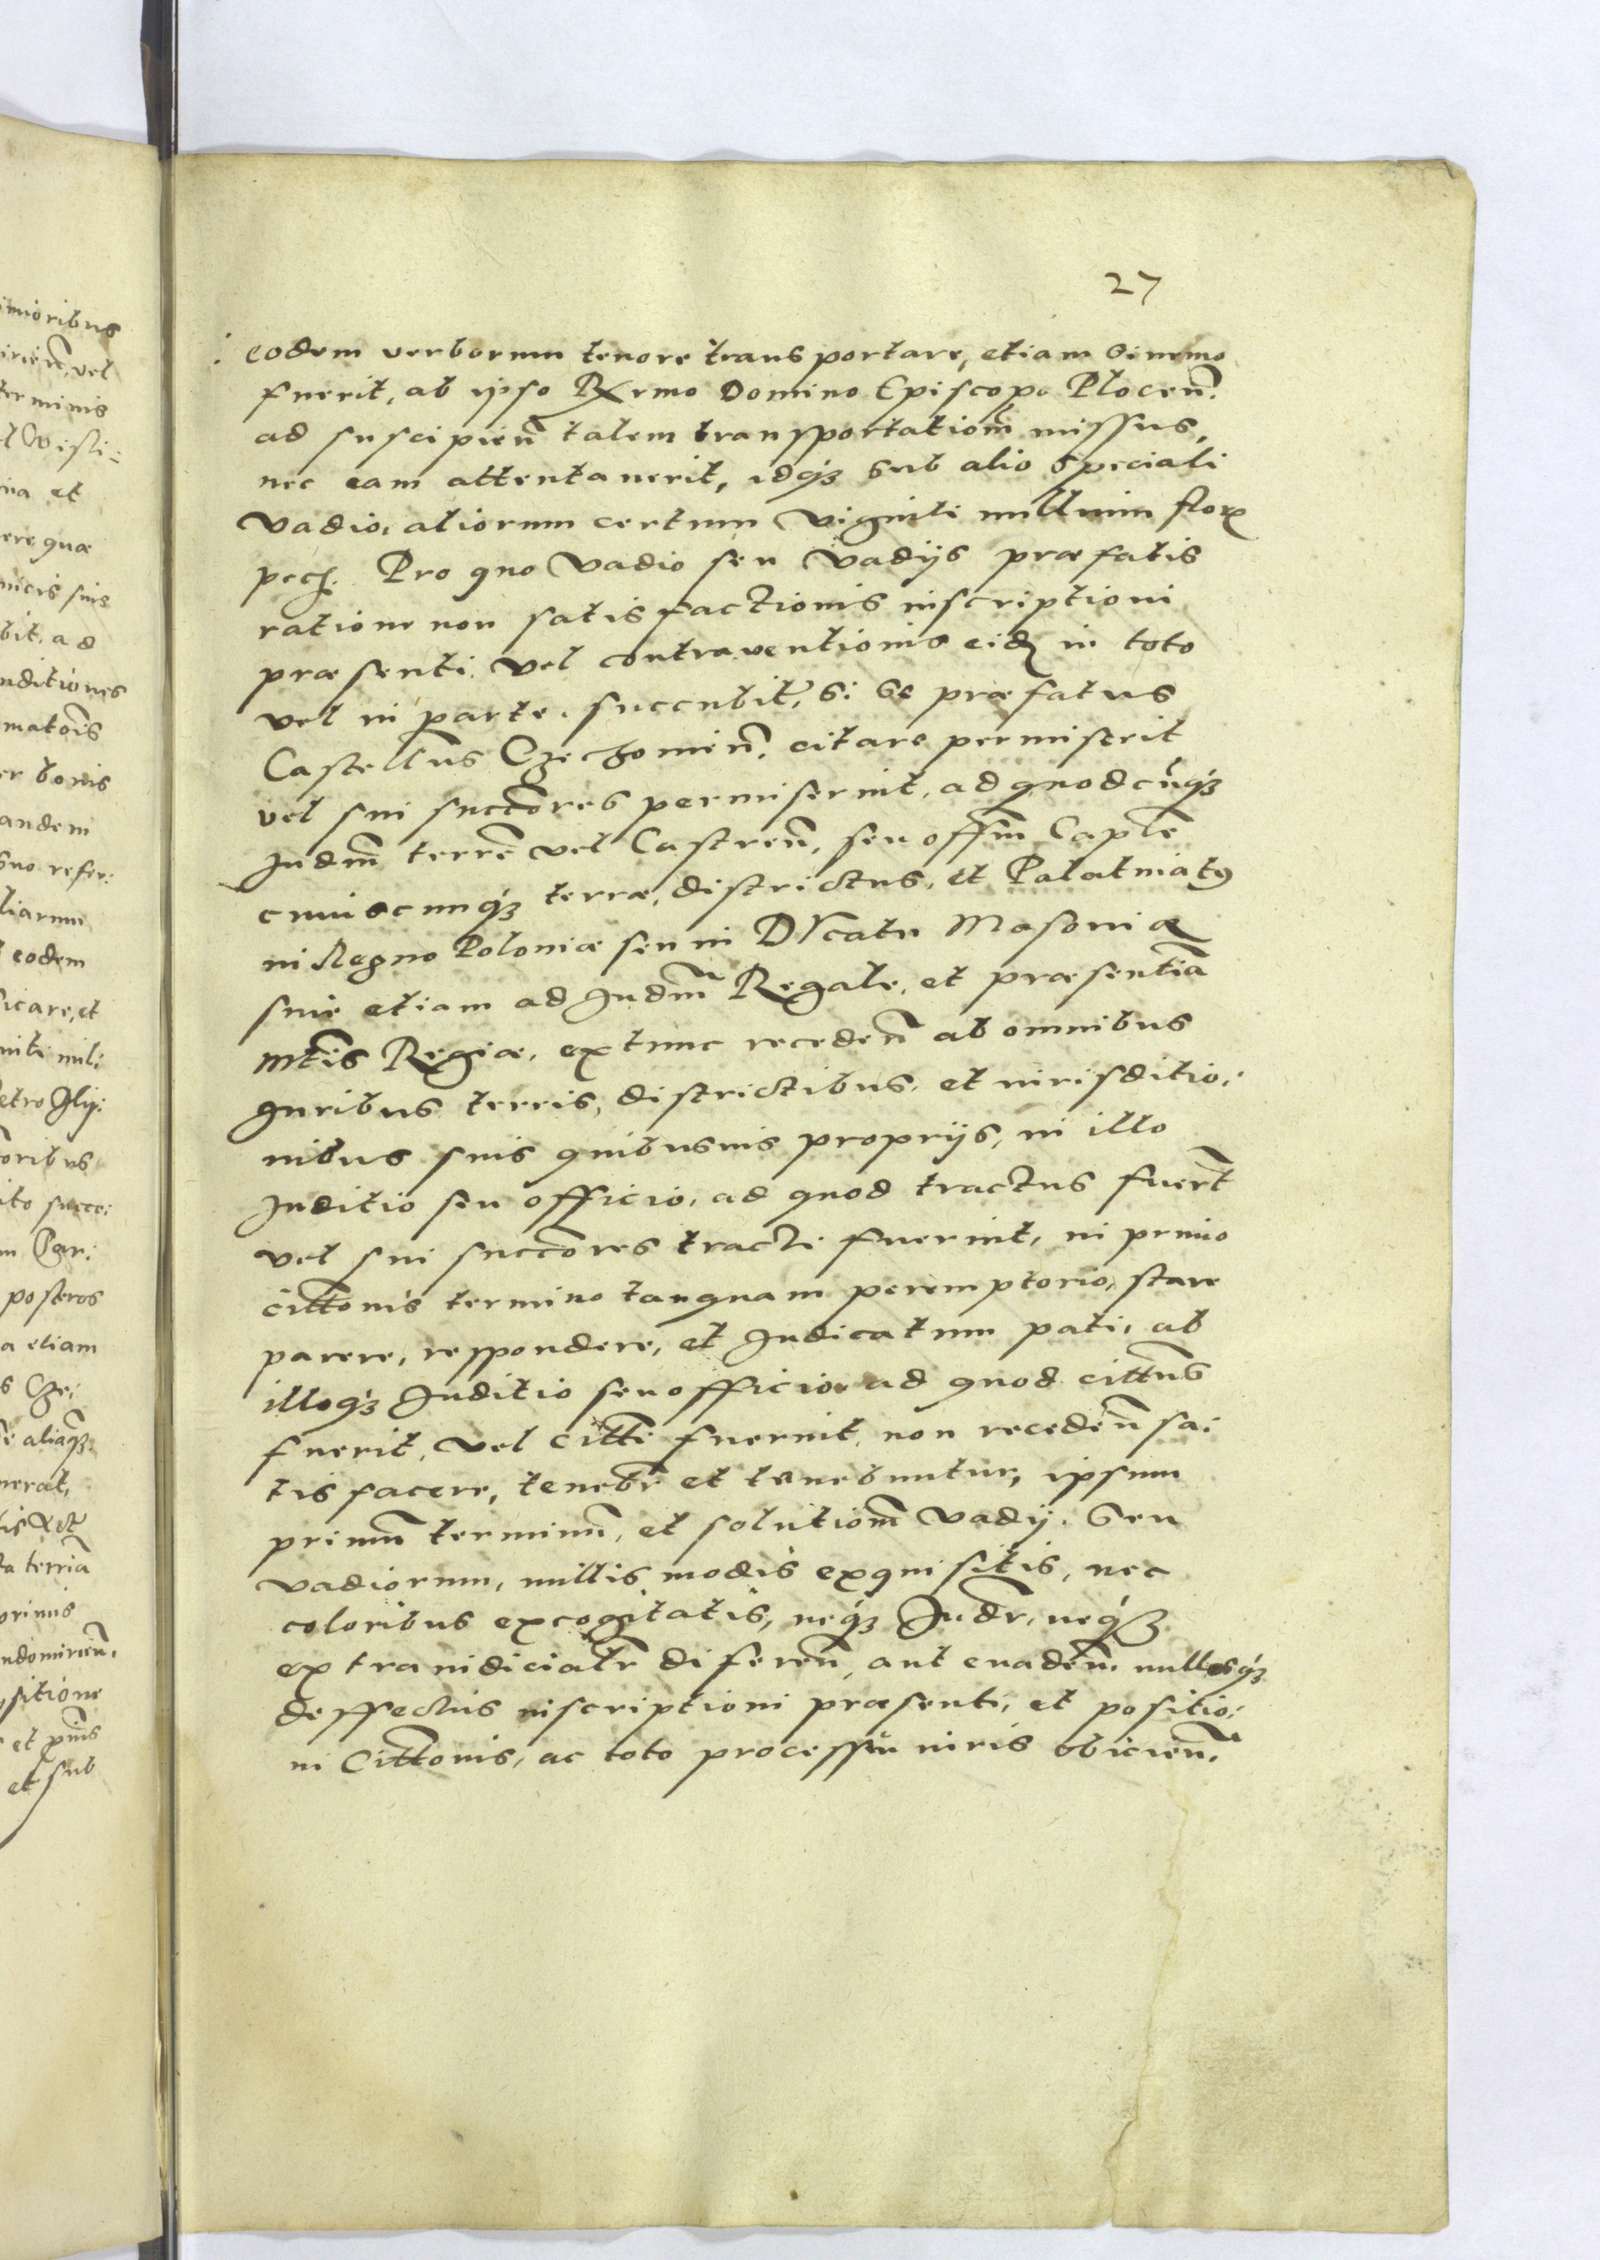 27
eodem verborum tenore transportare, etiam si nemo
fuerit, ab ipso Rxermo Domino Episcopo Plocen̄.
ad suscipien̄ talem transportationē missus,
nec eam attentaverit, idq́ꝫ sub alio speciali
vadio, aliorum certum viginti millium florꝝ
pecꝫ. Pro quo vadio seu vadijs præfatis
ratione non satisfactionis inscriptioni
præsenti vel contraventionis eidꝫ in toto
vel in parte. succubit̃, si se præfatus
Castelln̄s Czechomien̄. citare permiserit
vel sui succōres permiserint, ad quodcūq́ꝫ
Judm̄ terrē vel Castren̄, seu offm̄ Caplē
cuiuscunq́ꝫ terræ, districtus, et Palatinatꝰ
in Regno Poloniæ seu in Ducatu Masoviæ
sive etiam ad Judm̄ Regale, et præsentiā
Mtīs Regiæ, extunc receden̄ ab omnibus
Juribus terris, districtibus, et iurisditio:
nibus suis quibusvis proprijs, in illo
Juditio seu officio, ad quod tractus fuert̄
vel sui succōres tracti fuerint, in primo
cittōnis termino tanquam peremptorio, stare
parere, respondere, et Judicatum pati, ab
illoq́ꝫ Juditio seu officio ad quod cittūs
fuerit, vel cittī fuerint, non receden̄ sa:
tisfacere, tenebr̄ et tenebuntur, ipsum
primū terminū, et solutionē vadij. seu
vadiorum, nullis modis exquisitis, nec
coloribus excogitatis, neq́ꝫ Judr̄, neq́ꝫ
extraiudicialr̄ diferen̄, aut evaden̄. nullosq́ꝫ
deffectus inscriptioni præsenti, et positio:
ni Cittōnis, ac toto processui iuris obicien̄.